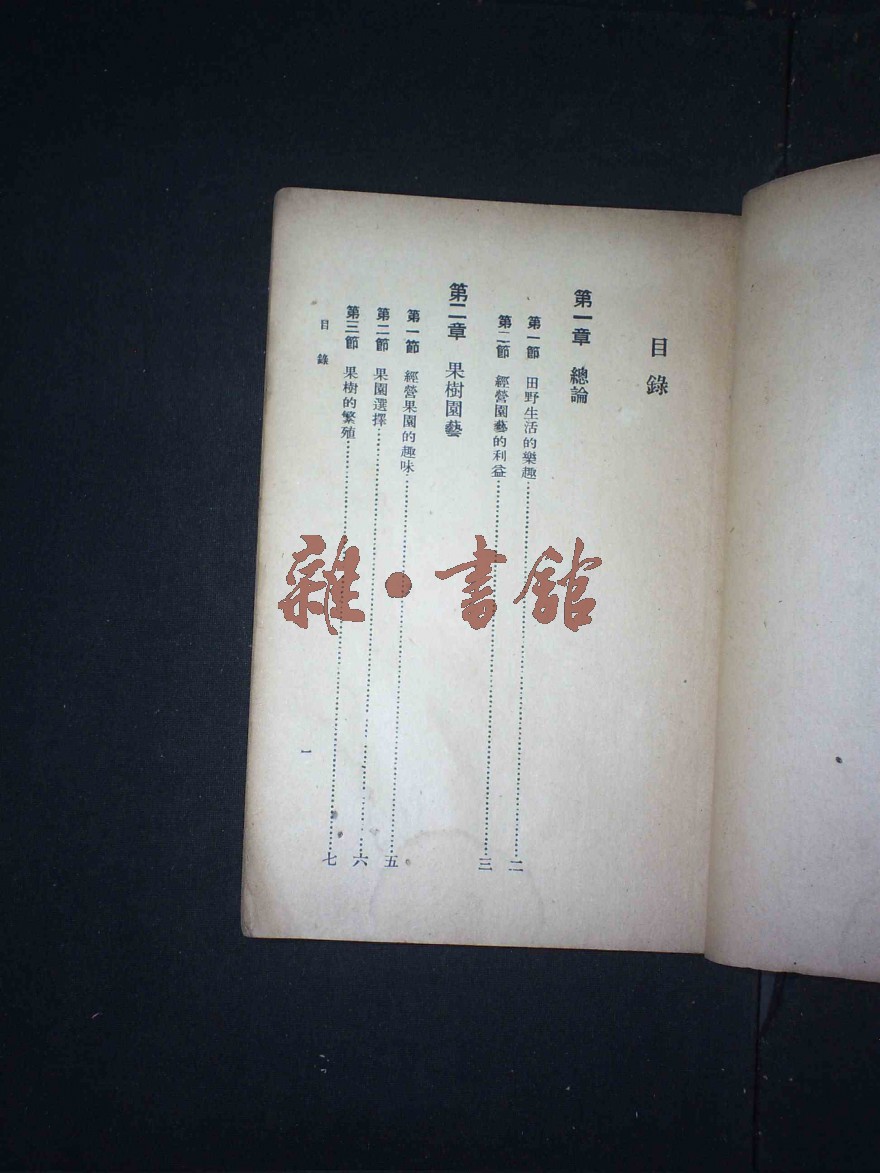 目錄
第一章 總論
第一節 田野生活的樂趣……二
第二節 經營園藝的利益……三
第二章 果樹園藝
第一節 經營果園的趣味……五
第二節 果園選擇……六
第三節 果樹的繁殖……七
目錄
一
雜·書館